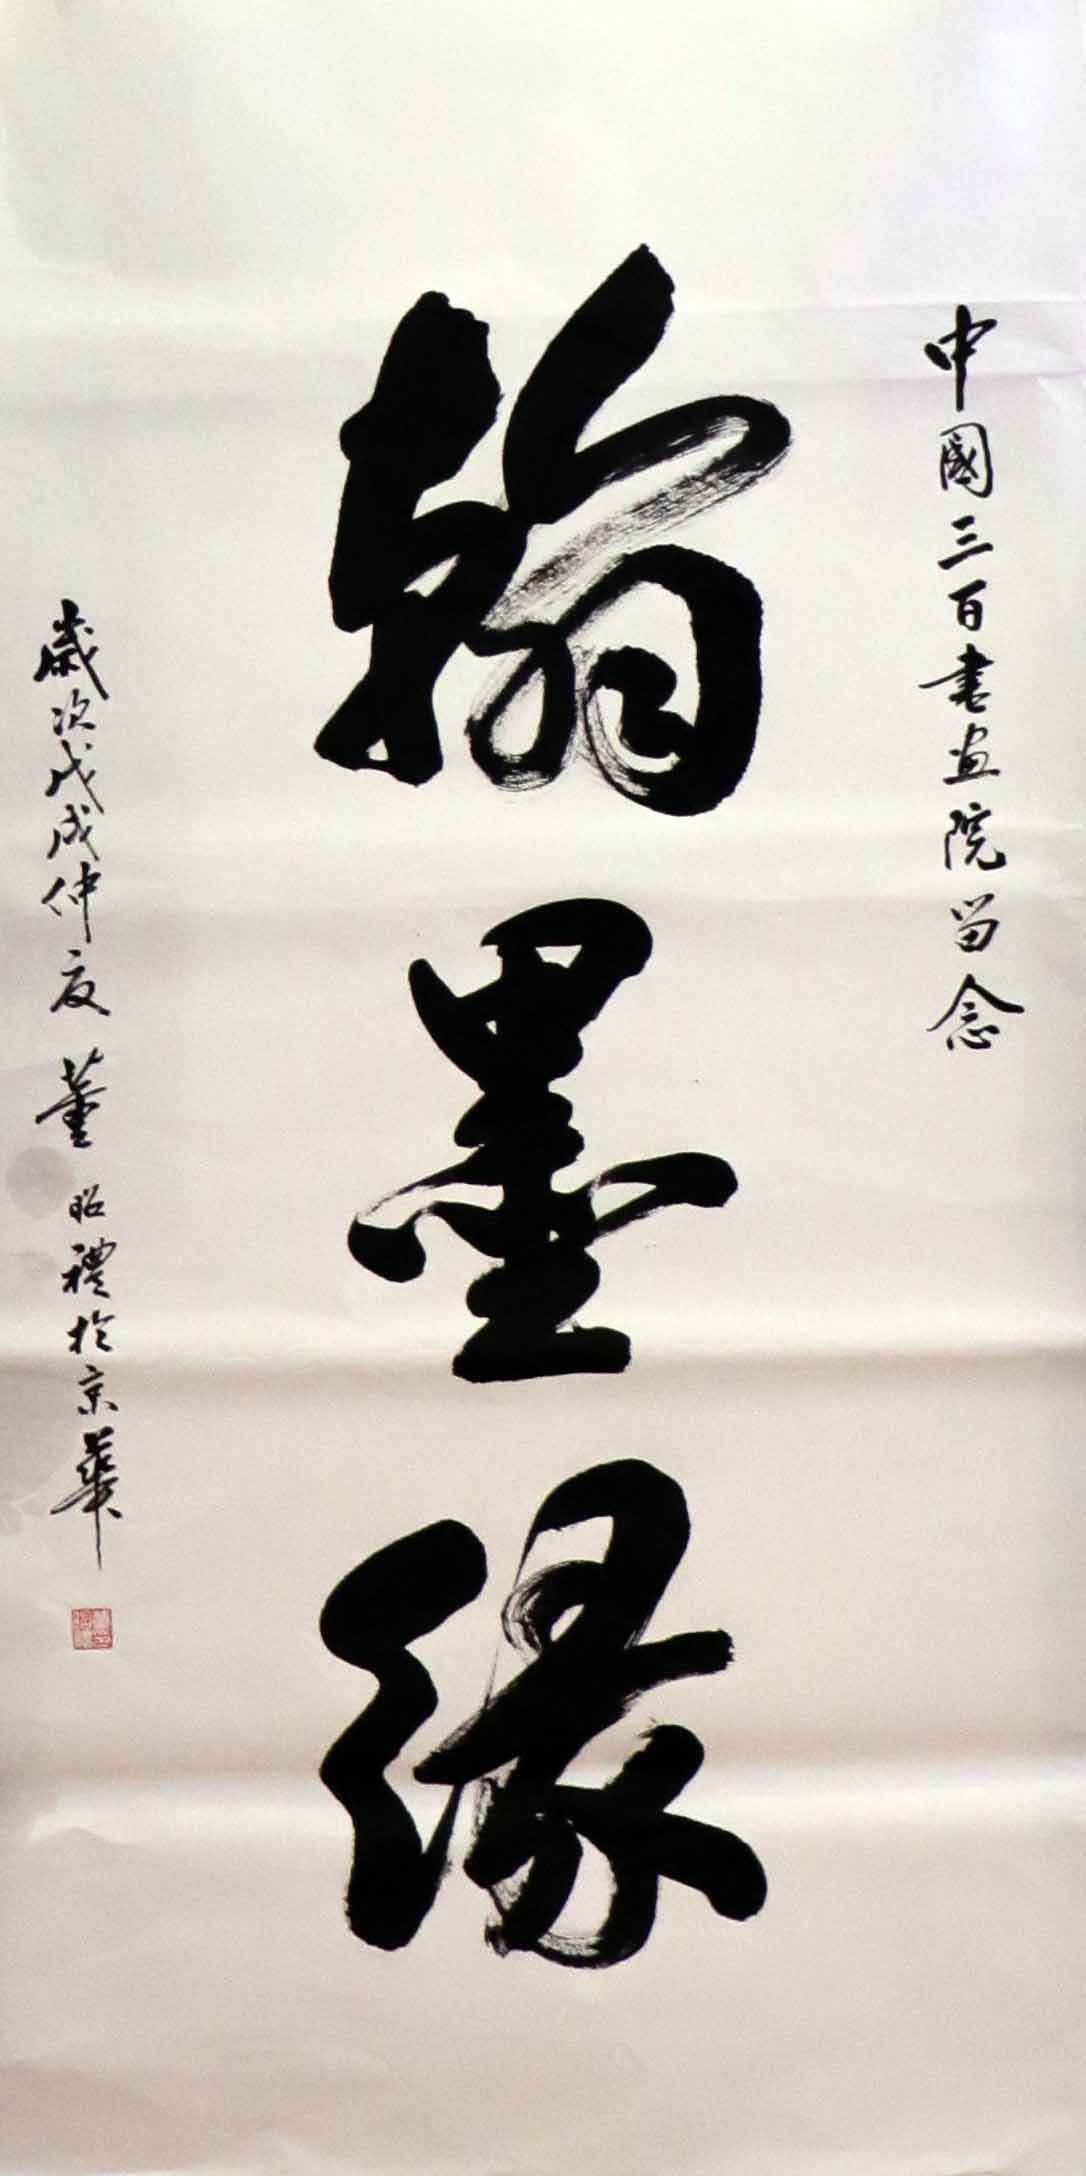 中國三百書画院留念
翰墨緣
歲次戊戌仲夏 董昭禮於京華